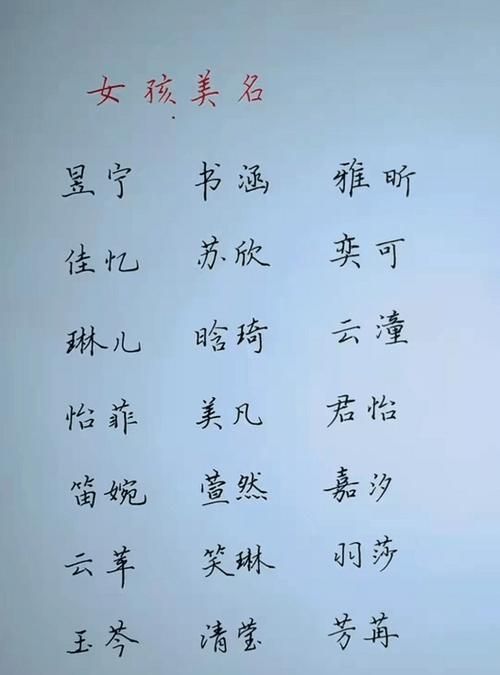 女孩美名
昱宁 书涵 雅昕
佳忆 苏欣 奕可
琳儿 晗琦 云潼
怡菲 美凡 君怡
笛婉 萱然 嘉汐
云苹 笑琳 羽莎
玉芩 清莹 芳苒